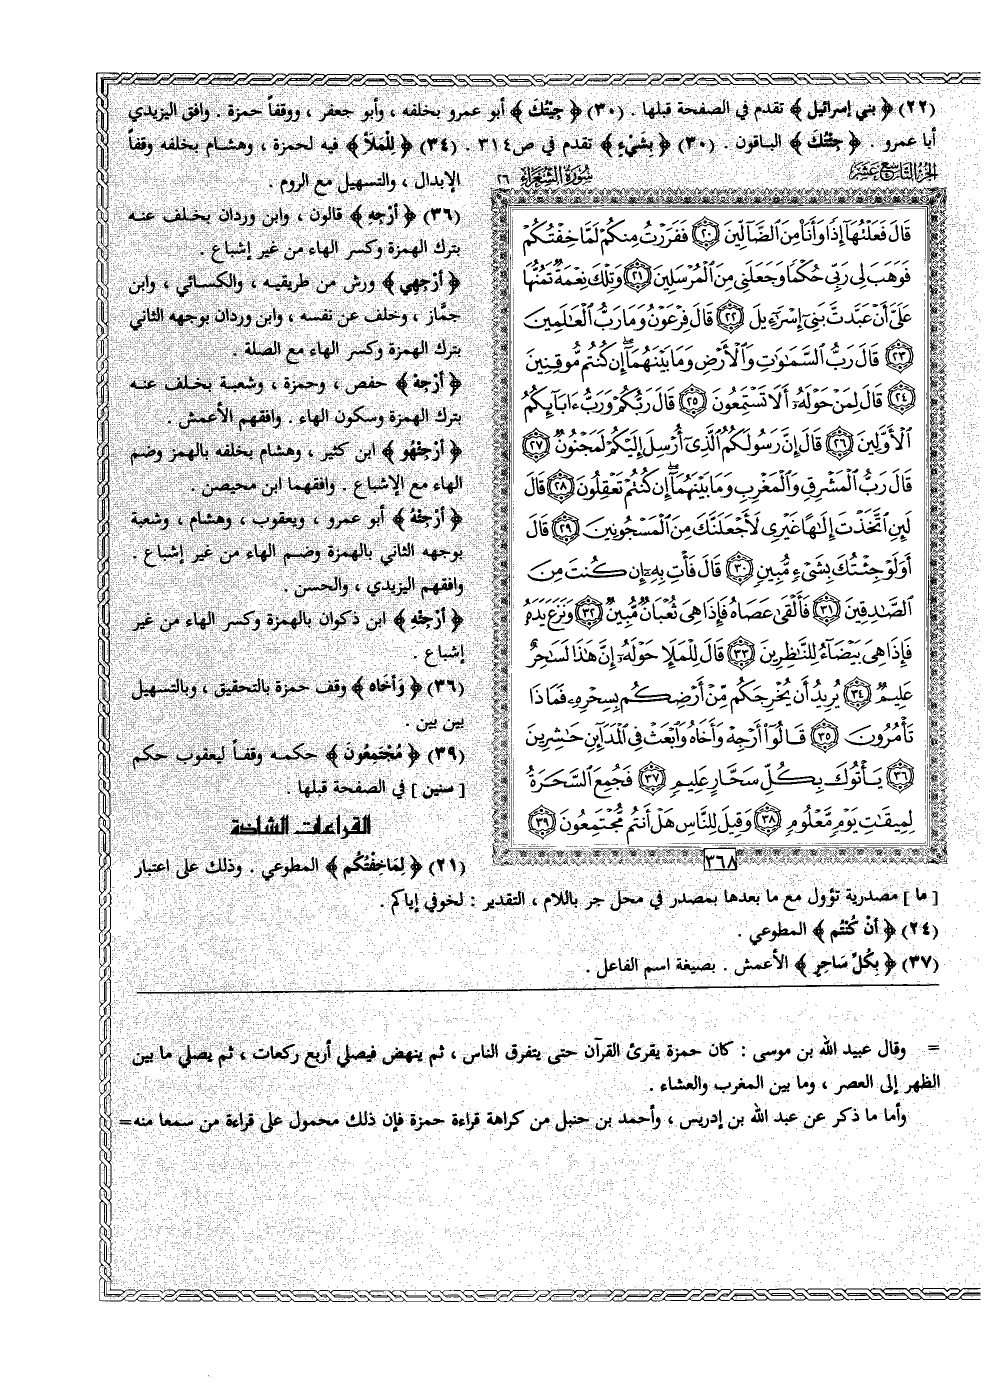 (٢٢) ﴿ بني إسرائيل ﴾ تقدم في الصفحة قبلها . (٣٠) ﴿ جِيْتُكَ ﴾ أبو عمرو بخلفه ، وأبو جعفر ، ووقفاً حمزة . وافق اليزيدي
أبا عمرو . ﴿ جِئْتُكَ ﴾ الباقون . (٣٠) ﴿ بِشَيْءٍ ﴾ تقدم في ص٣١٤ . (٣٤) ﴿ لِلْمَلَأِ ﴾ فيه لحمزة ، وهشام بخلفه وقفاً
الإبدال ، والتسهيل مع الروم .
(٣٦) ﴿ أَرْجِهِ ﴾ قالون ، وابن وردان بخلف عنه
بترك الهمزة وكسر الهاء من غير إشباع .
﴿ أَرْجِهِي ﴾ ورش من طريقيه ، والكسائي ، وابن
جمَّاز ، وخلف عن نفسه ، وابن وردان بوجهه الثاني
بترك الهمزة وكسر الهاء مع الصلة .
﴿ أَرْجِهْ ﴾ حفص ، وحمزة ، وشعبة بخلف عنه
بترك الهمزة وسكون الهاء . وافقهم الأعمش .
﴿ أَرْجِئْهُو ﴾ ابن كثير ، وهشام بخلفه بالهمز وضم
الهاء مع الإشباع . وافقهما ابن محيصن .
﴿ أَرْجِئْهُ ﴾ أبو عمرو ، ويعقوب ، وهشام ، وشعبة
بوجهه الثاني بالهمزة وضم الهاء من غير إشباع .
وافقهم اليزيدي ، والحسن .
﴿ أَرْجِئْهِ ﴾ ابن ذكوان بالهمزة وكسر الهاء من غير
إشباع .
(٣٦) ﴿ وَأَخَاه ﴾ وقف حمزة بالتحقيق ، وبالتسهيل
بين بين .
(٣٩) ﴿ مُجْتَمِعُونَ ﴾ حكمه وقفاً ليعقوب حكم
[ سنين ] في الصفحة قبلها .
القراءات الشاذة
(٢١) ﴿ لِمَا خِفْتُكُم ﴾ المطوعي . وذلك على اعتبار
الجزء التاسع عشر
سورة الشعراء ٢٦
قَالَ فَعَلْتُهَا إِذًا وَأَنَا مِنَ الضَّالِّينَ ﴿٢٠﴾ فَفَرَرْتُ مِنكُمْ لَمَّا خِفْتُكُمْ
فَوَهَبَ لِي رَبِّي حُكْمًا وَجَعَلَنِي مِنَ الْمُرْسَلِينَ ﴿٢١﴾ وَتِلْكَ نِعْمَةٌ تَمُنُّهَا
عَلَيَّ أَنْ عَبَّدتَّ بَنِي إِسْرَٰٓءِيلَ ﴿٢٢﴾ قَالَ فِرْعَوْنُ وَمَا رَبُّ الْعَٰلَمِينَ
﴿٢٣﴾ قَالَ رَبُّ السَّمَٰوَٰتِ وَالْأَرْضِ وَمَا بَيْنَهُمَا إِن كُنتُم مُّوقِنِينَ
﴿٢٤﴾ قَالَ لِمَنْ حَوْلَهُۥ أَلَا تَسْتَمِعُونَ ﴿٢٥﴾ قَالَ رَبُّكُمْ وَرَبُّ ءَابَآئِكُمُ
الْأَوَّلِينَ ﴿٢٦﴾ قَالَ إِنَّ رَسُولَكُمُ الَّذِي أُرْسِلَ إِلَيْكُمْ لَمَجْنُونٌ ﴿٢٧﴾
قَالَ رَبُّ الْمَشْرِقِ وَالْمَغْرِبِ وَمَا بَيْنَهُمَا إِن كُنتُمْ تَعْقِلُونَ ﴿٢٨﴾ قَالَ
لَئِنِ اتَّخَذْتَ إِلَٰهًا غَيْرِي لَأَجْعَلَنَّكَ مِنَ الْمَسْجُونِينَ ﴿٢٩﴾ قَالَ
أَوَلَوْ جِئْتُكَ بِشَيْءٍ مُّبِينٍ ﴿٣٠﴾ قَالَ فَأْتِ بِهِۦ إِن كُنتَ مِنَ
الصَّٰدِقِينَ ﴿٣١﴾ فَأَلْقَىٰ عَصَاهُ فَإِذَا هِيَ ثُعْبَانٌ مُّبِينٌ ﴿٣٢﴾ وَنَزَعَ يَدَهُۥ
فَإِذَا هِيَ بَيْضَآءُ لِلنَّٰظِرِينَ ﴿٣٣﴾ قَالَ لِلْمَلَإِ حَوْلَهُۥ إِنَّ هَٰذَا لَسَٰحِرٌ
عَلِيمٌ ﴿٣٤﴾ يُرِيدُ أَن يُخْرِجَكُم مِّنْ أَرْضِكُم بِسِحْرِهِۦ فَمَاذَا
تَأْمُرُونَ ﴿٣٥﴾ قَالُوٓا أَرْجِهْ وَأَخَاهُ وَابْعَثْ فِي الْمَدَآئِنِ حَٰشِرِينَ
﴿٣٦﴾ يَأْتُوكَ بِكُلِّ سَحَّارٍ عَلِيمٍ ﴿٣٧﴾ فَجُمِعَ السَّحَرَةُ
لِمِيقَٰتِ يَوْمٍ مَّعْلُومٍ ﴿٣٨﴾ وَقِيلَ لِلنَّاسِ هَلْ أَنتُم مُّجْتَمِعُونَ ﴿٣٩﴾
٣٦٨
[ ما ] مصدرية تؤول مع ما بعدها بمصدر في محل جر باللام ، التقدير : لخوفي إياكم .
(٢٤) ﴿ أَنْ كُنْتُم ﴾ المطوعي .
(٣٧) ﴿ بِكُلِّ سَاحِرٍ ﴾ الأعمش . بصيغة اسم الفاعل .
= وقال عبيد الله بن موسى : كان حمزة يقرئ القرآن حتى يتفرق الناس ، ثم ينهض فيصلي أربع ركعات ، ثم يصلي ما بين
الظهر إلى العصر ، وما بين المغرب والعشاء .
وأما ما ذكر عن عبد الله بن إدريس ، وأحمد بن حنبل من كراهة قراءة حمزة فإن ذلك محمول على قراءة من سمعا منه=